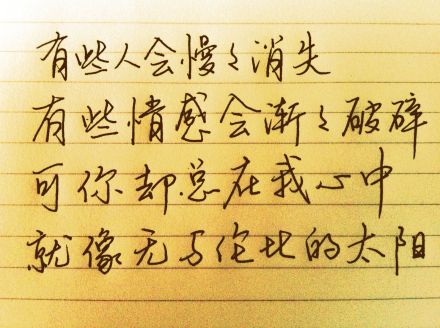 有些人会慢々消失
有些情感会渐々破碎
可你却总在我心中
就像无与伦比的太阳